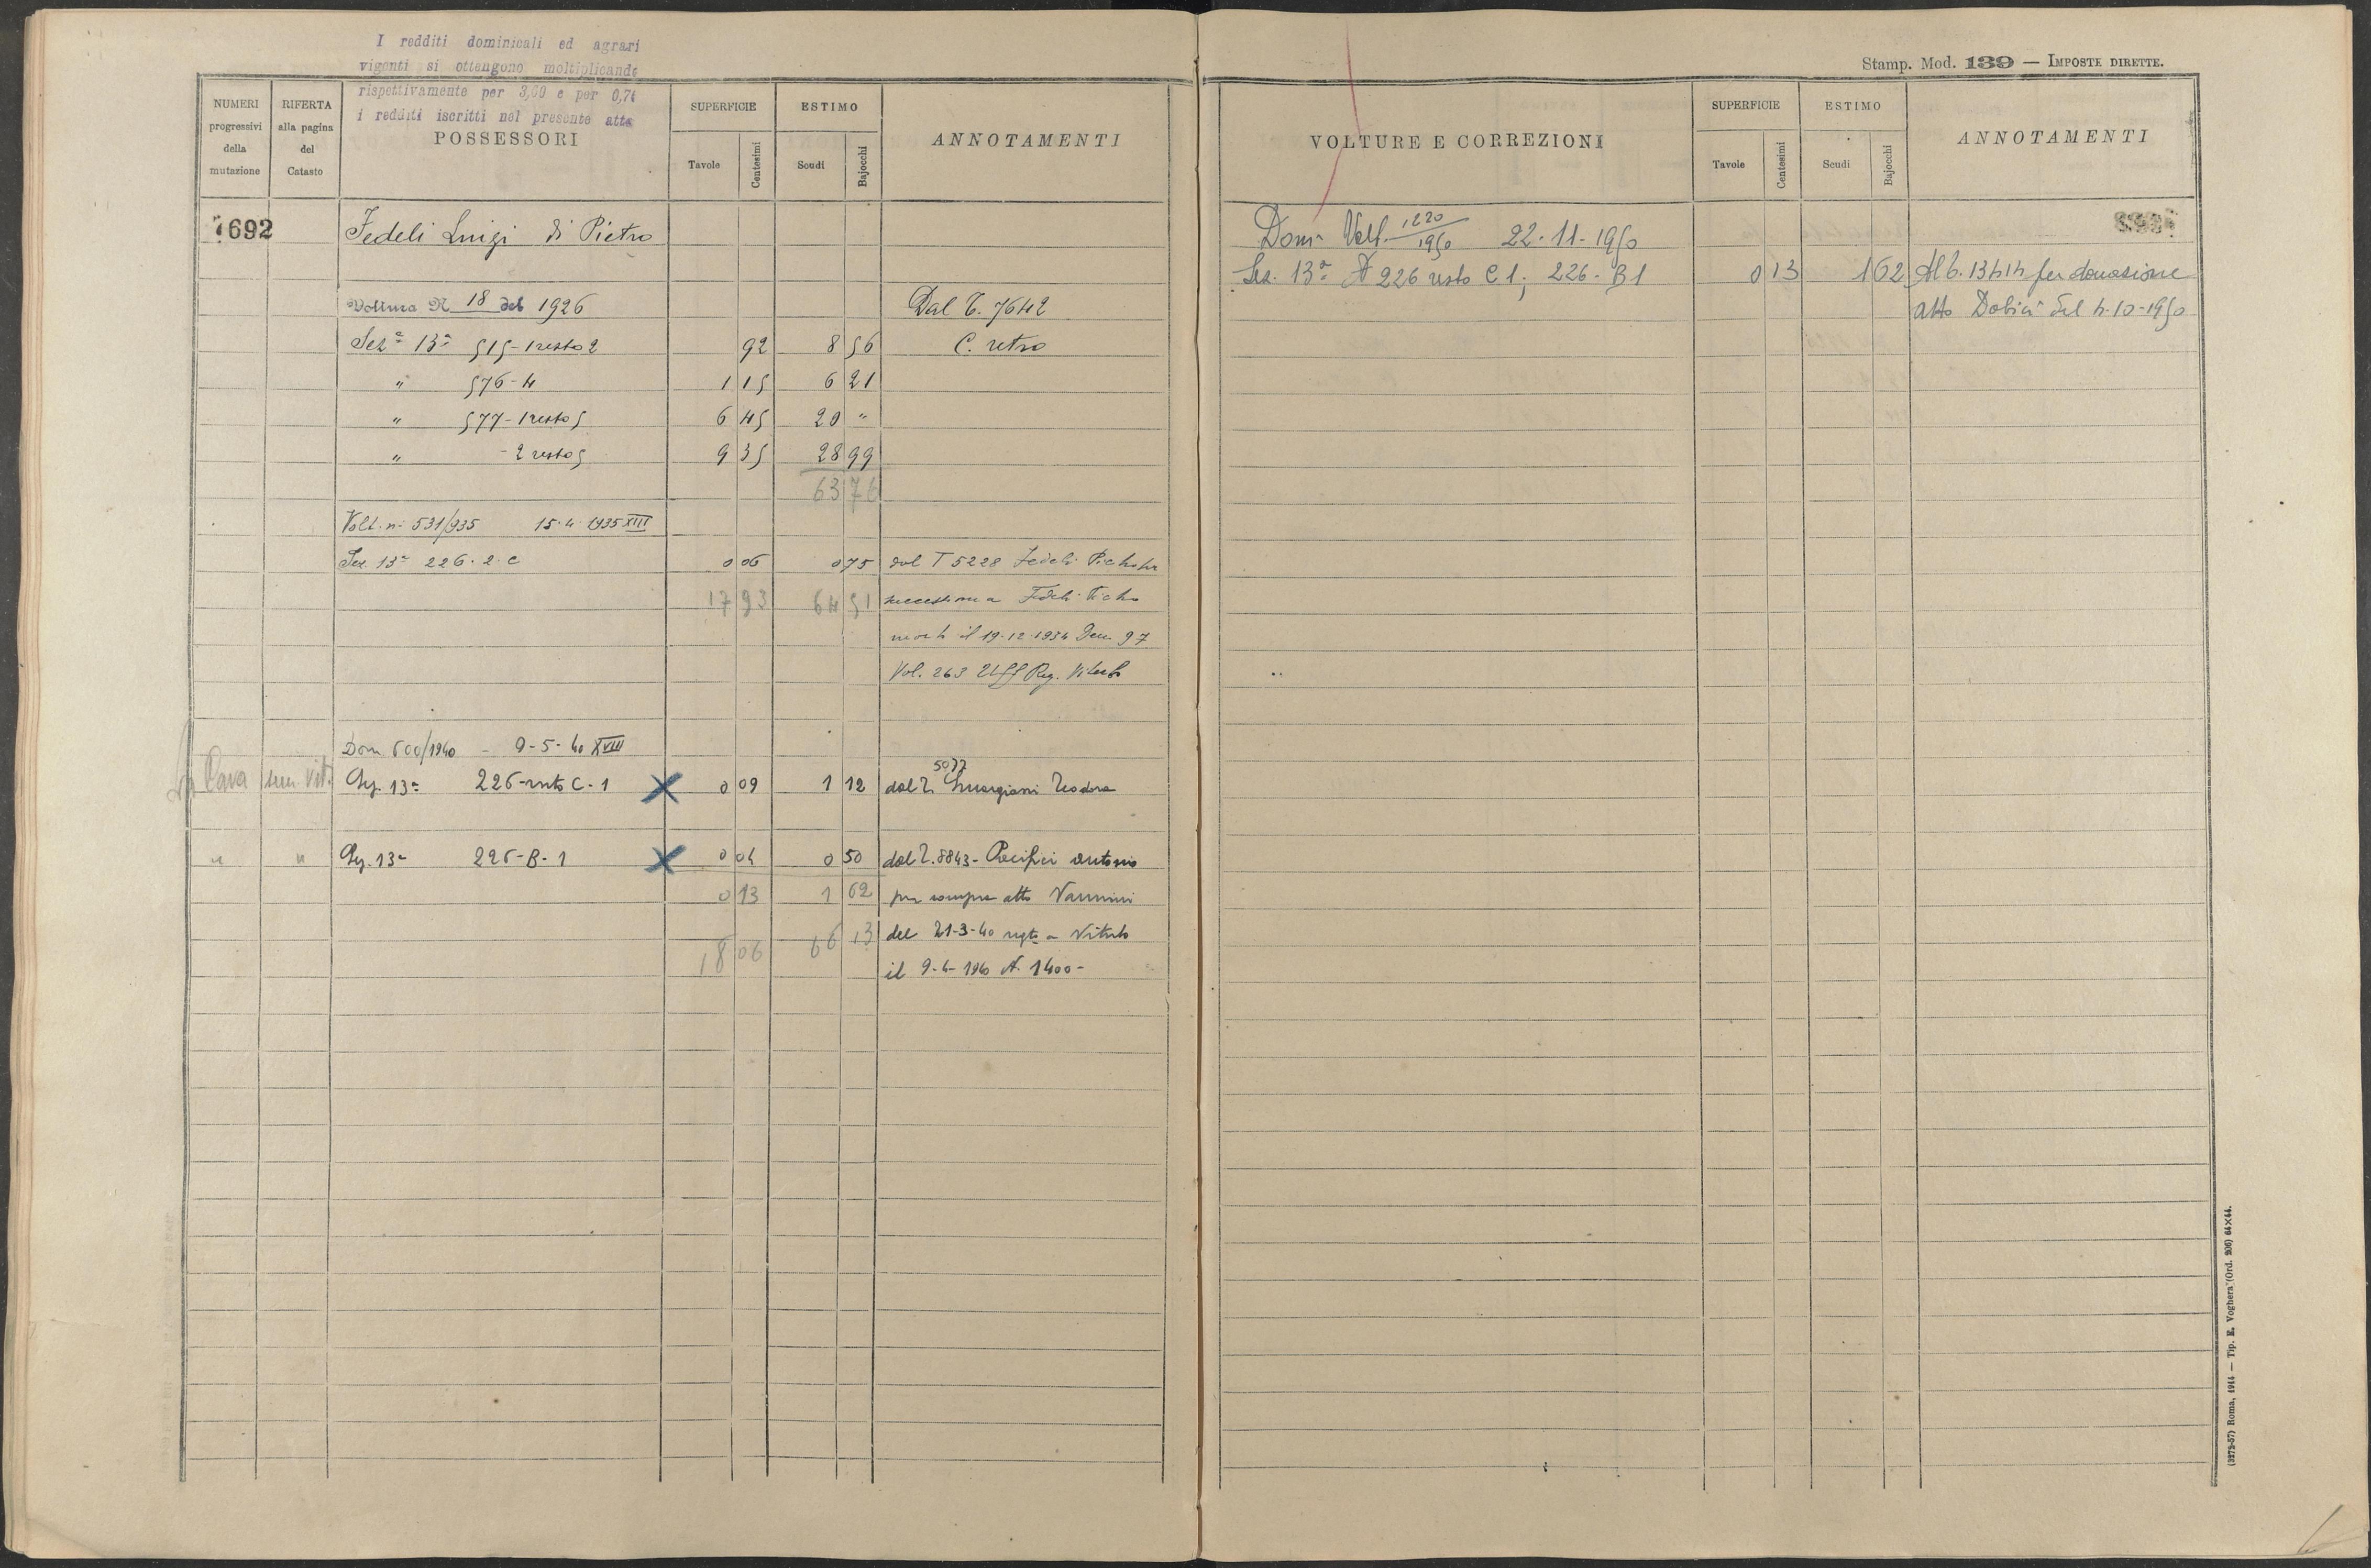 I redditi dominicali ed agrari
vigenti si ottengono moltiplicando
rispettivamente per 3,00 e per 0,74
i redditi iscritti nel presente atto
NUMERI progressivi della mutazione
RIFERTA alla pagina del Catasto
POSSESSORI
SUPERFICIE
Tavole Centesimi
ESTIMO
Scudi Bajocchi
ANNOTAMENTI
7692 Fedeli Luigi di Pietro
Voltura N 18 del 1926 Dal T. 7642
Sez.e 13a 515-1 resto 2 92 8 56 C. retro
" 576-4 1 15 6 21
" 577-1 resto 5 6 45 20 "
" -2 resto 5 9 35 28 99
63 76
Volt. n. 531/935 15.4.1935 XIII
Sez. 13a 226.2.C 0 06 0 75 dal T 5228 Fedeli
17 93 64 51 successione a Fedeli
morto il 19-12-1934 Den. 97
Vol. 263 Uff Reg. Viterbo
Dom. 600/1940 - 9-5-40 XVIII
Cava
5077
Sez. 13a 226-resto C-1 0 09 1 12 dal T. Teodora
" " Sez. 13a 226-B-1 0 04 0 50 dal T. 8843 - Pacifici Antonio
0 13 1 62 per compra atto Vannini
18 06 66 13 del 21-3-40 regto a Viterbo
il 9-4-1940 N. 1400-
Stamp. Mod. 139 — IMPOSTE DIRETTE.
VOLTURE E CORREZIONI
SUPERFICIE
Tavole Centesimi
ESTIMO
Scudi Bajocchi
ANNOTAMENTI
Dom. Volt. 1220/1950 22-11-1950
Sez. 13a N 226 resto C 1; 226-B1 0 13 1 62 Al 6. 13414 per donazione
atto Dobici del 4-10-1950
(3272-57) Roma, 1914 — Tip. E. Voghera (Ord. 206) 64×44.